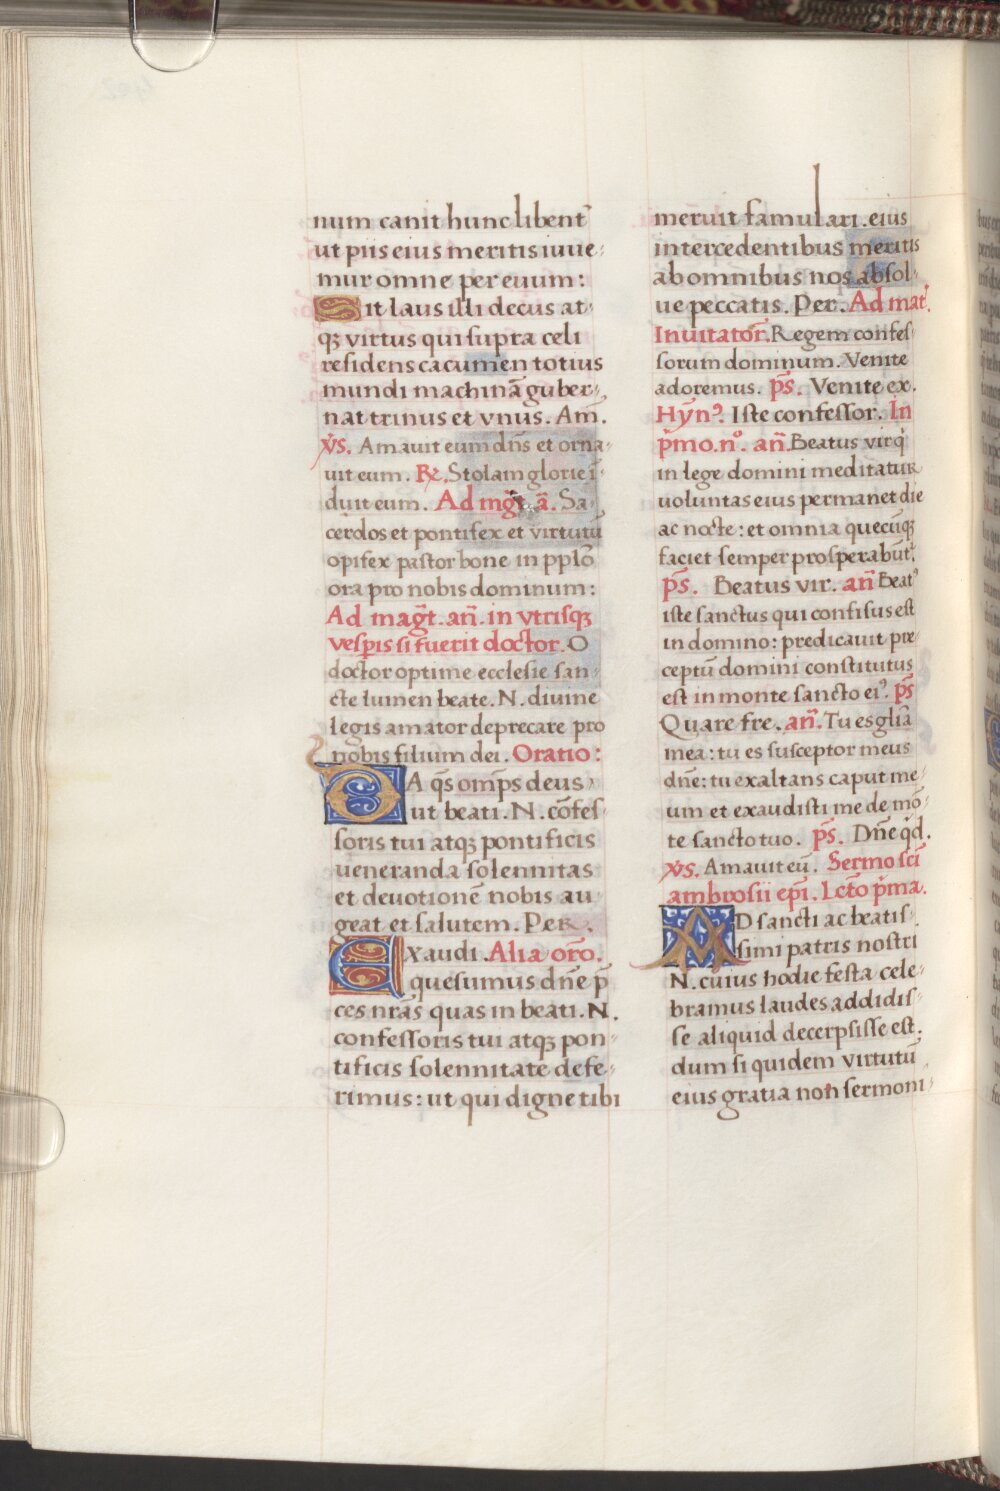 num canit hunc libent᷑
ut piis eius meritis iuue-
mur omne per euum:
Sit laus illi decus at-
qꝫ virtus qui supra celi
residens cacumen totius
mundi machinã guber-
nat trinus et vnus. Am.
v̇s. Amauit eum dñs et orna-
uit eum. R̷. Stolam glorie ĩ-
duit eum. Ad mg̃t. ã. Sa-
cerdos et pontifex et virtutũ
opifex pastor bone in pplõ
ora pro nobis dominum:
Ad mag̃t. añ. in vtrisqꝫ
vesp̃is si fuerit doctor. O
doctor optime ecclesie san-
cte lumen beate. N. diuine
legis amator deprecare pro
nobis filium dei. Oratio:
DA q̃s om̃ps deus
ut beati. N. cõfes-
soris tui atqꝫ pontificis
ueneranda solennitas
et deuotionẽ nobis au
geat et salutem. Per.
Exaudi. Alia orõ.
quesumus dñe p̃
ces nr̃as quas in beati. N.
confessoris tui atqꝫ pon-
tificis solennitate defe-
rimus: ut qui digne tibi
meruit famulari. eius
intercedentibus meritis
ab omnibus nos absol-
ue peccatis. Per. Ad mat᷑.
Inuitator̃. Regem confes-
sorum dominum. Venite
adoremus. p̃s. Venite ex.
Hỹnꝰ. Iste confessor. In
p̃mo. n°. añ. Beatus vir q̇
in lege domini meditatur
uoluntas eius permanet die
ac nocte: et omnia quecũqꝫ
faciet semper prosperabũt᷑.
p̃s. Beatus vir. añ Beatꝰ
iste sanctus qui confisus est
in domino: predicauit pre-
ceptũ domini constitutus
est in monte sancto eiꝰ. p̃s
Quare fre. añ. Tu es gl̃ia
mea: tu es susceptor meus
dñe: tu exaltans caput me-
um et exaudisti me de mõ-
te sancto tuo. p̃s. Dñe q̇d.
v̇s. Amauit eũ. Sermo sc̃i
ambrosii ep̃i. Lcto p̃ma.
AD sancti ac beatis-
simi patris nostri
N. cuius hodie festa cele-
bramus laudes addidis-
se aliquid decerpsisse est.
dum si quidem virtutũ
eius gratia non sermoni-